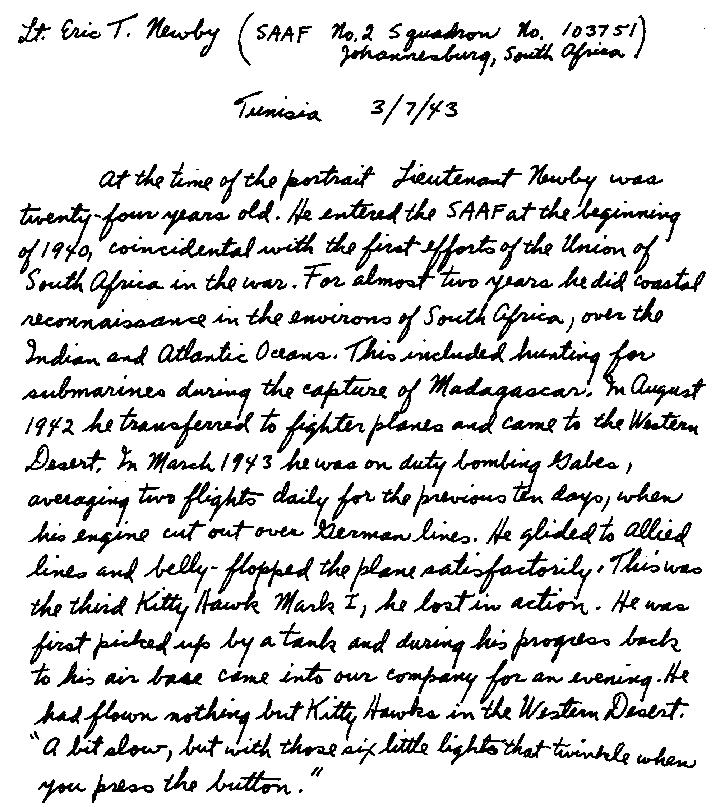 Lt. Eric T. Newby (SAAF No. 2 Squadron No. 103751)
Johannesburg, South Africa
Tunisia 3/7/43
At the time of the portrait Lieutenant Newby was
twenty-four years old. He entered the SAAF at the beginning
of 1940, coincidental with the first efforts of the Union of
South Africa in the war. For almost two years he did coastal
reconnaissance in the environs of South Africa, over the
Indian and Atlantic Oceans. This included hunting for
submarines during the capture of Madagascar. In August
1942 he transferred to fighter planes and came to the Western
Desert. In March 1943 he was on duty bombing Gabes,
averaging two flights daily for the previous ten days, when
his engine cut out over German lines. He glided to Allied
lines and belly-flopped the plane satisfactorily. This was
the third Kitty Hawk Mark I, he lost in action. He was
first picked up by a tank and during his progress back
to his air base came into our company for an evening. He
had flown nothing but Kitty Hawks in the Western Desert.
"A bit slow, but with those six little lights that twinkle when
you press the button."